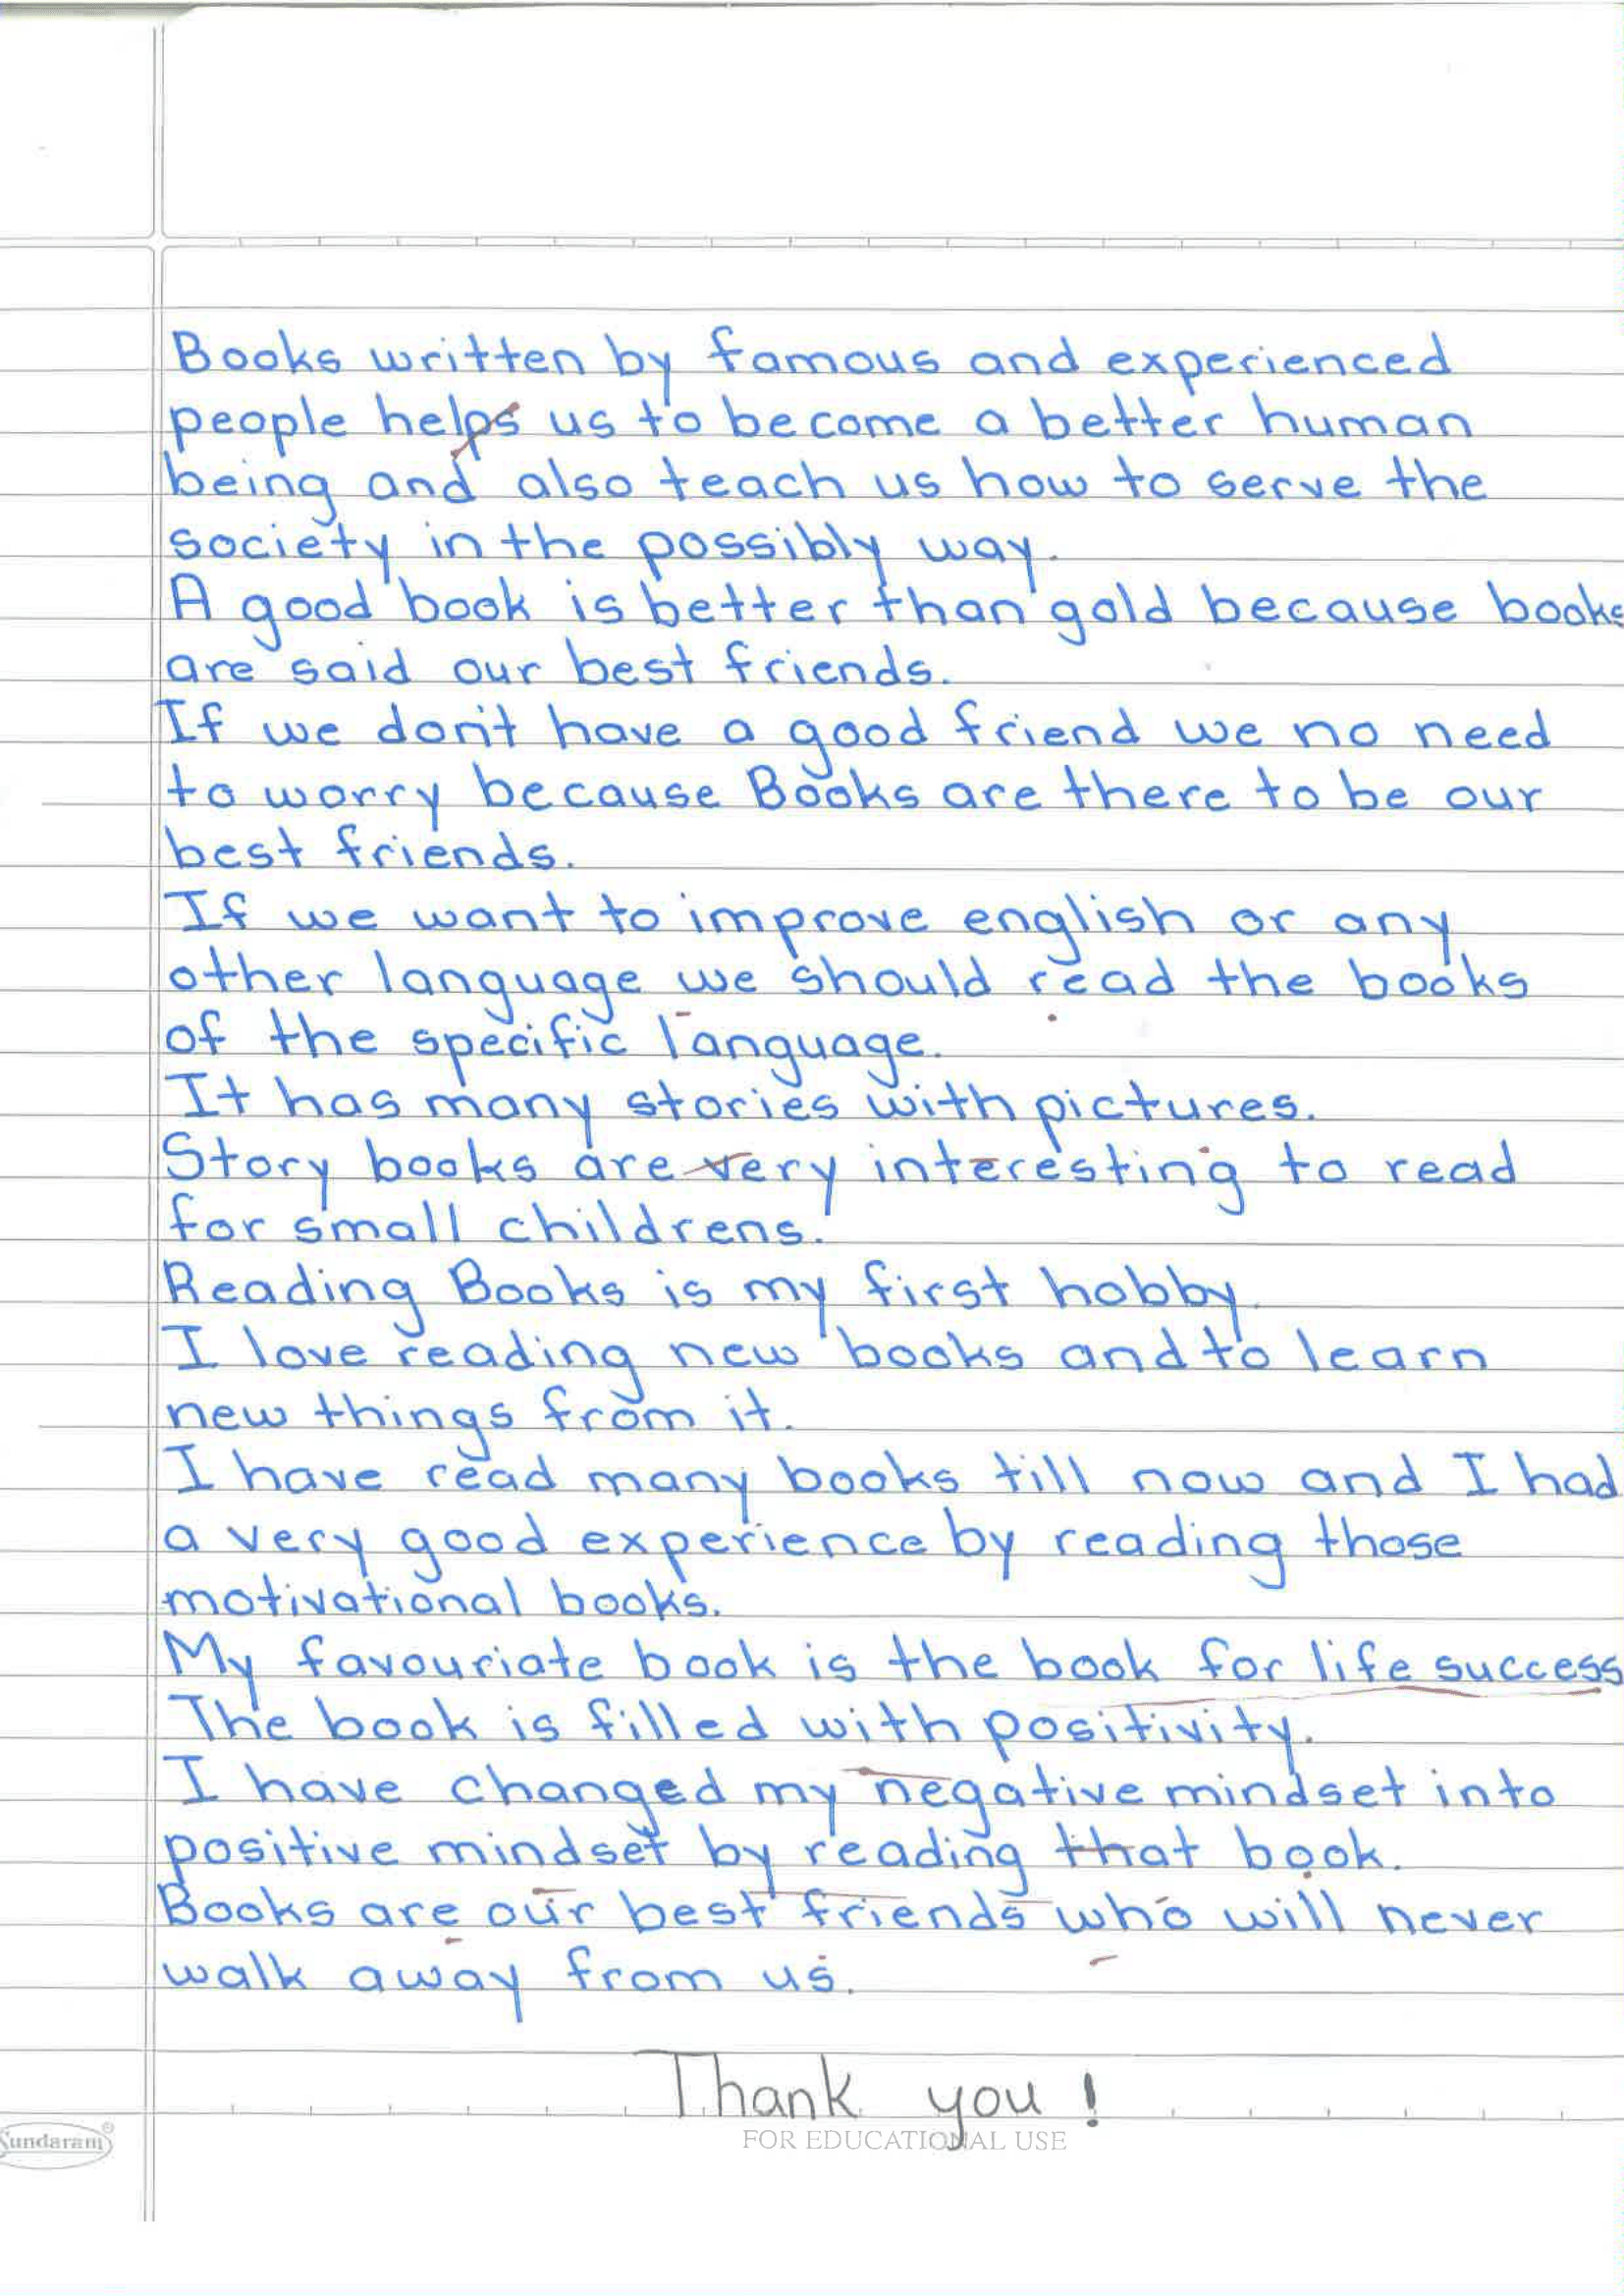 Books written by famous and experienced
people helps us to become a better human
being and also teach us how to serve the
society in the possibly way.
A good book is better than gold because books
are said our best friends.
If we don't have a good friend we no need
to worry because Books are there to be our
best friends.
If we want to improve english or any
other language we should read the books
of the specific language.
It has many stories with pictures.
Story books are very interesting to read
for small childrens.
Reading Books is my first hobby.
I love reading new books and to learn
new things from it.
I have read many books till now and I had
a very good experience by reading those
motivational books.
My favouriate book is the book for life success
The book is filled with positivity.
I have changed my negative mindset into
positive mindset by reading that book.
Books are our best friends who will never
walk away from us.
Thank you !
Sundaram
FOR EDUCATIONAL USE